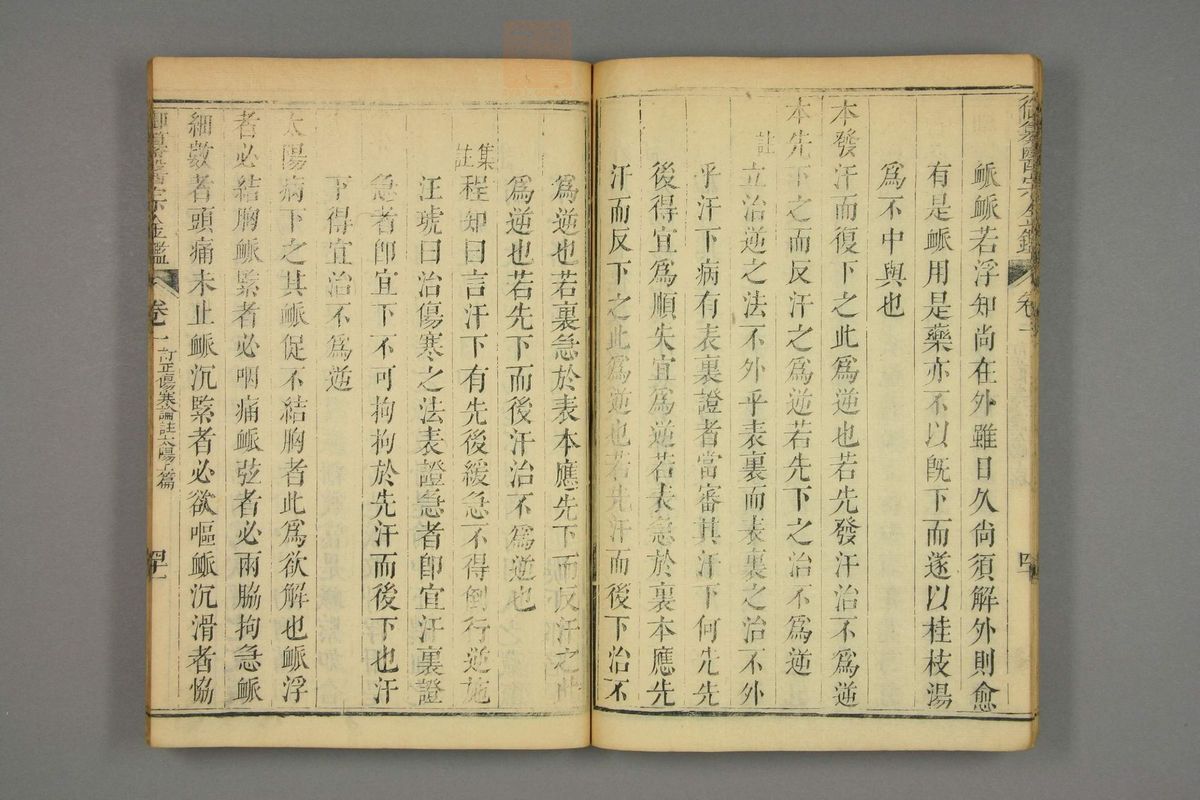 御纂醫宗金鑑 卷一
脈脈若浮知尚在外雖日久尚須解外則愈
有是脈用是藥亦不以旣下而遂以桂枝湯
爲不中與也
本發汗而復下之此爲逆也若先發汗治不爲逆
本先下之而反汗之爲逆若先下之治不爲逆
註
立治逆之法不外乎表裏而表裏之治不外
乎汗下病有表裏證者當審其汗下何先先
後得宜爲順失宜爲逆若表急於裏本應先
汗而反下之此爲逆也若先汗而後下治不
爲逆也若裏急於表本應先下而反汗之此
爲逆也若先下而後汗治不爲逆也
集註
程知曰言汗下有先後緩急不得倒行逆施
汪琥曰治傷寒之法表證急者卽宜汗裏證
急者卽宜下不可拘拘於先汗而後下也汗
下得宜治不爲逆
太陽病下之其脈促不結胸者此爲欲解也脈浮
者必結胸脈緊者必咽痛脈弦者必兩脇拘急脈
細數者頭痛未止脈沉緊者必欲嘔脈沉滑者恊
御纂醫宗金鑑 卷一 訂正傷寒論註太陽下篇